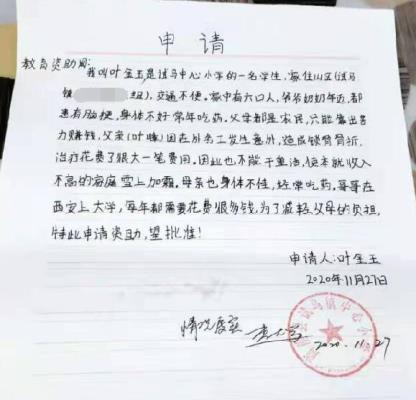 申请
教育资助局：
我叫叶金玉，是试马中心小学的一名学生，家住山区(试马
镇 组)，交通不便。家中有六口人，爷爷奶奶年迈，都
患有脑梗，身体不好常年吃药。父母都是农民，只能靠出苦
力赚钱，父亲(叶 )因在外务工发生意外，造成锁骨骨折，
治疗花费了很大一笔费用。因此也不能干重活，使本就收入
不高的家庭雪上加霜。母亲也身体不佳，经常吃药，哥哥在
西安上大学，每年都需要花费很多钱，为了减轻父母的负担，
特此申请资助，望批准！
申请人：叶金玉
2020年11月27日
情况属实
2020.11.27
试马镇中心小学